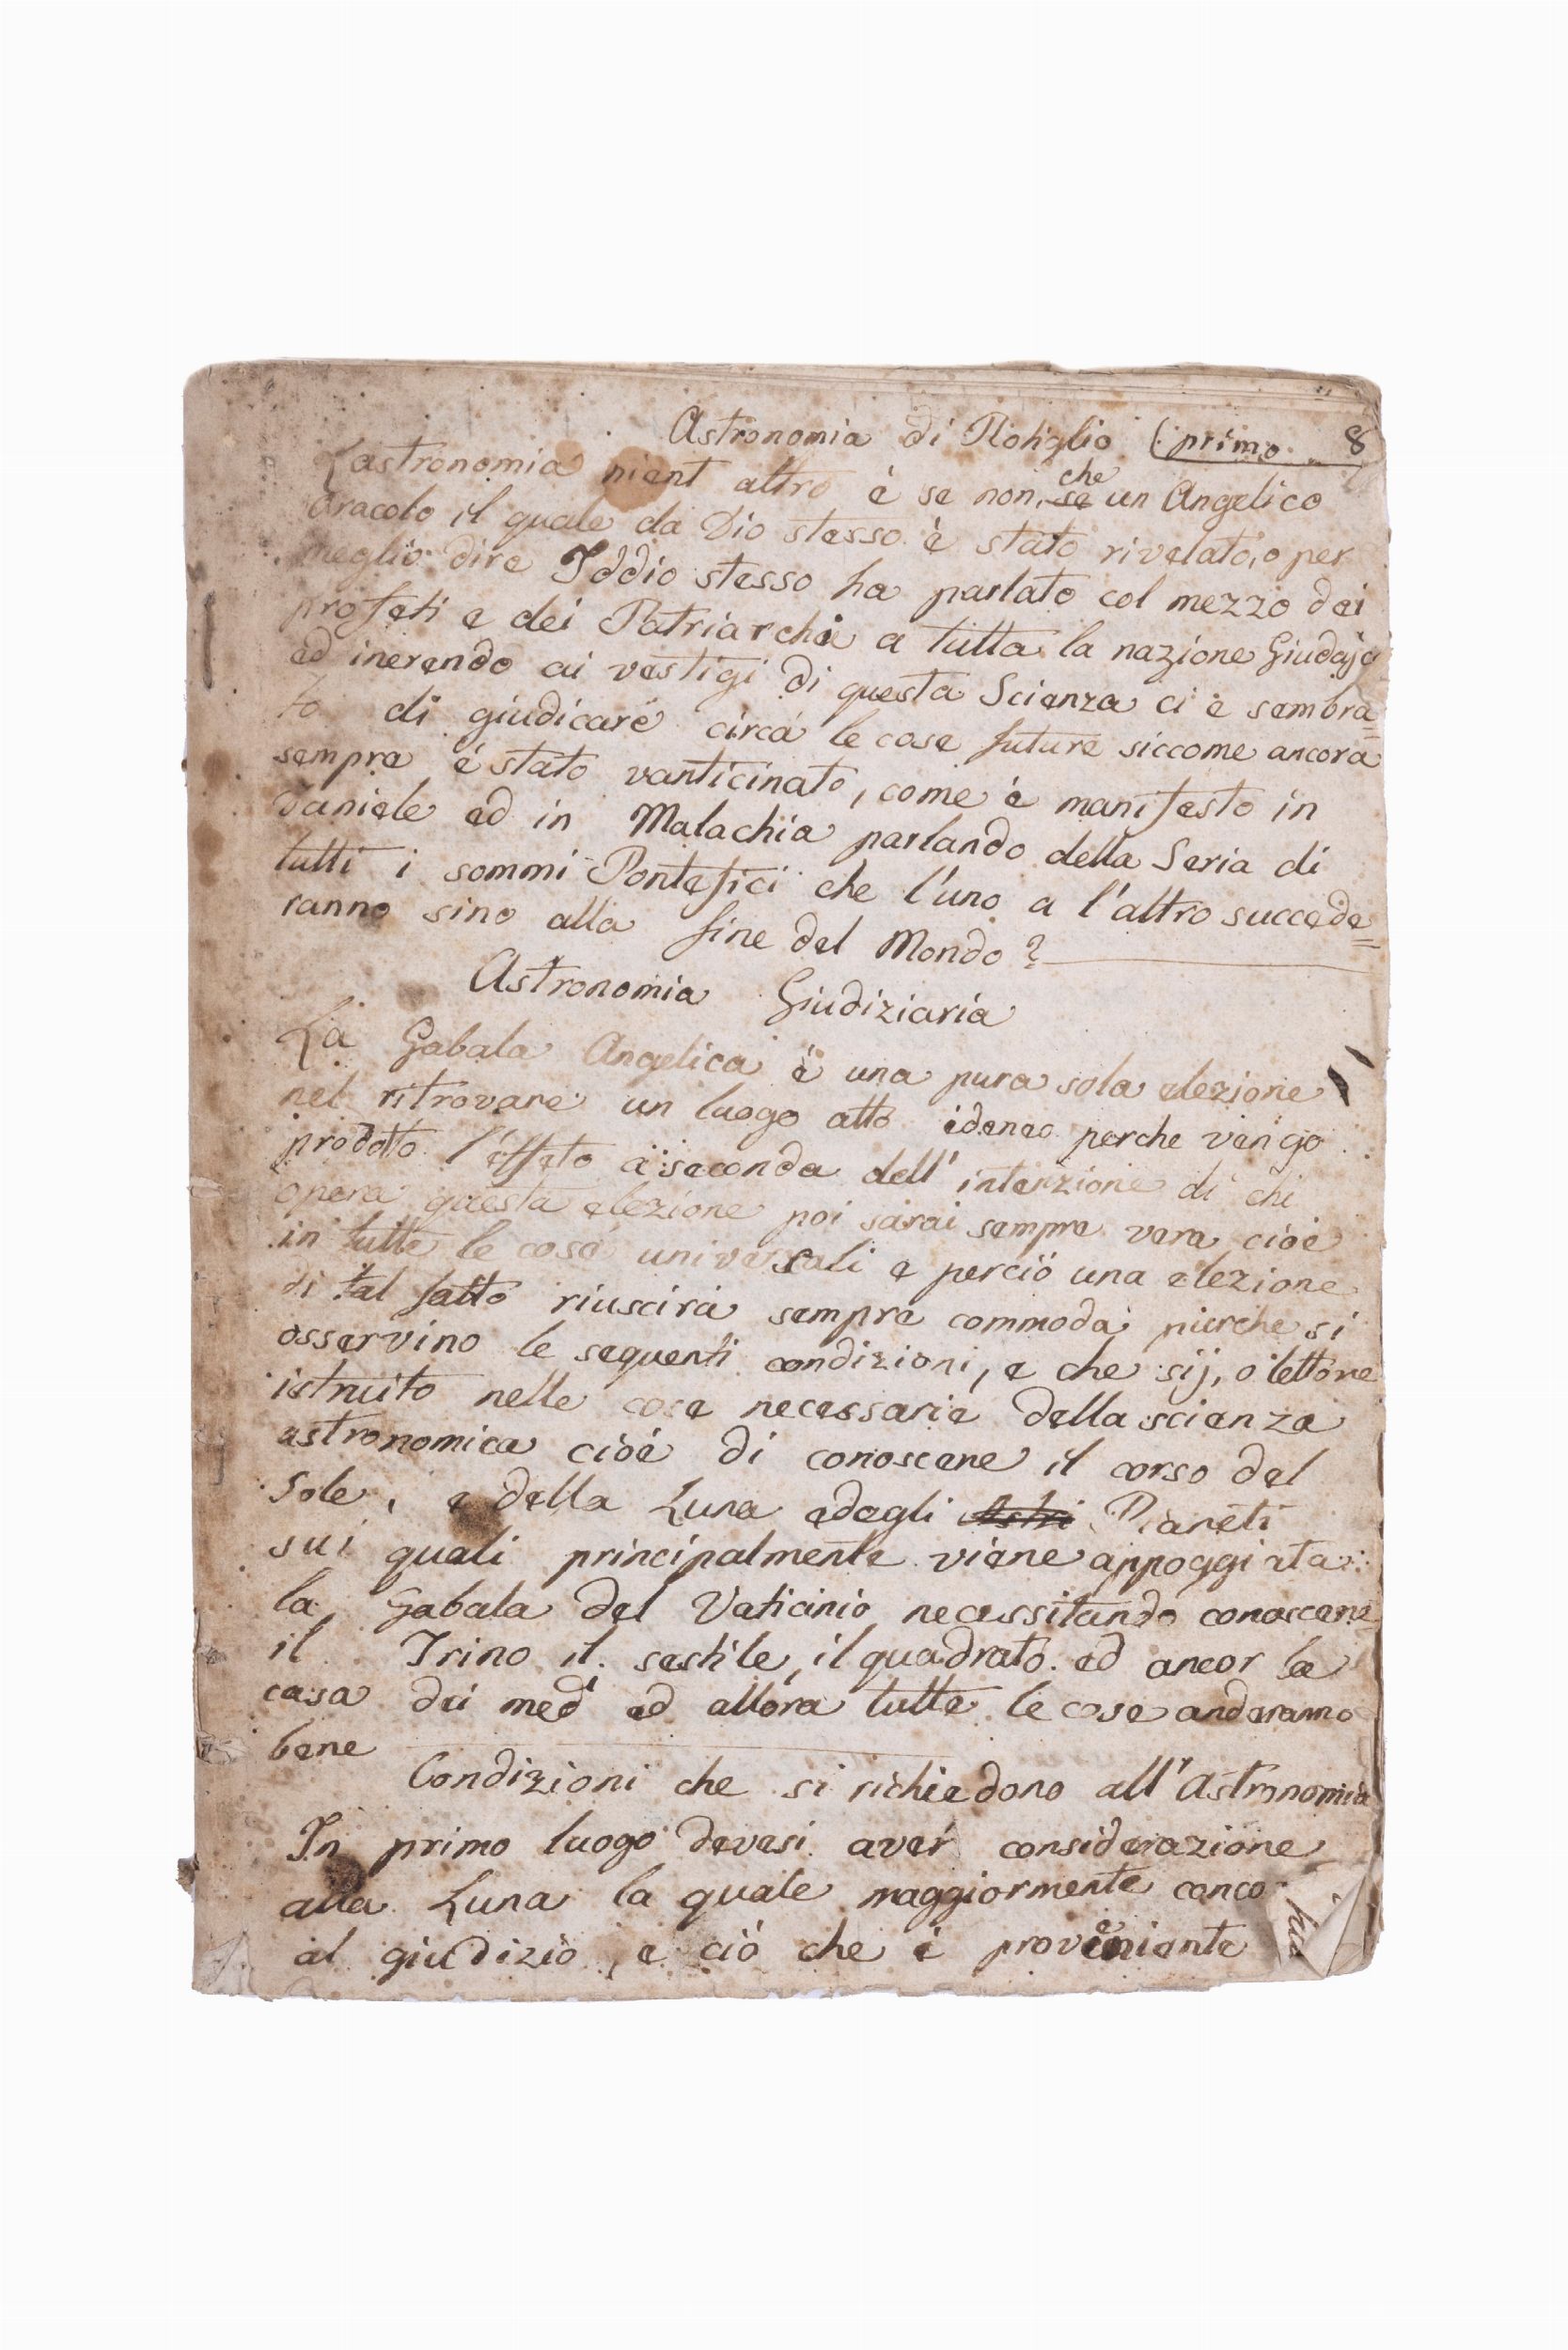 Astronomia di Rohglio (primo 8
Lastronomia nient altro è se non, se che un Angelico
Oracolo il quale da Dio stesso è stato rivelato, o per
meglio dire Iddio stesso ha parlato col mezzo dei
profeti e dei Patriarchi a tutta la nazione Giudaja
ed inerendo ai vestigi di questa Scienza ci è sembra=
to di giudicare circa le cose future siccome ancora
sempre è stato vanticinato, come è manifesto in
Daniele ed in Malachia parlando della Seria di
tutti i sommi Pontefici che l'uno a l'altro succede=
ranno sino alla fine del Mondo?
Astronomia Giudiziaria
La Gabala Angelica è una pura sola elezione
nel ritrovare un luogo atto idoneo perche vengo
prodotto l'effeto a seconda dell' intenzione di chi
opera questa elezione poi sarai sempre vera cioè
in tutte le cose universali e perciò una elezione
di tal fatto riuscirà sempre commoda pierche si
osservino le sequenti condizioni, e che sij, o lettore
istruito nelle cose necessarie della scienza
astronomica cioé di conoscere il corso del
Sole, e della Luna edegli Astri Pianeti
sui quali principalmente viene appoggiata
la Gabala del Vaticinio necessitando conoscere
il Trino il sestile, il quadrato ed ancor la
casa dei med.i ed allora tutte le cose anderamo
bene
Condizioni che si richiedono all' Astronomia
In primo luogo devesi aver considerazione
alla Luna la quale maggiormente conco
al giudizio, e ciò che è proveniente